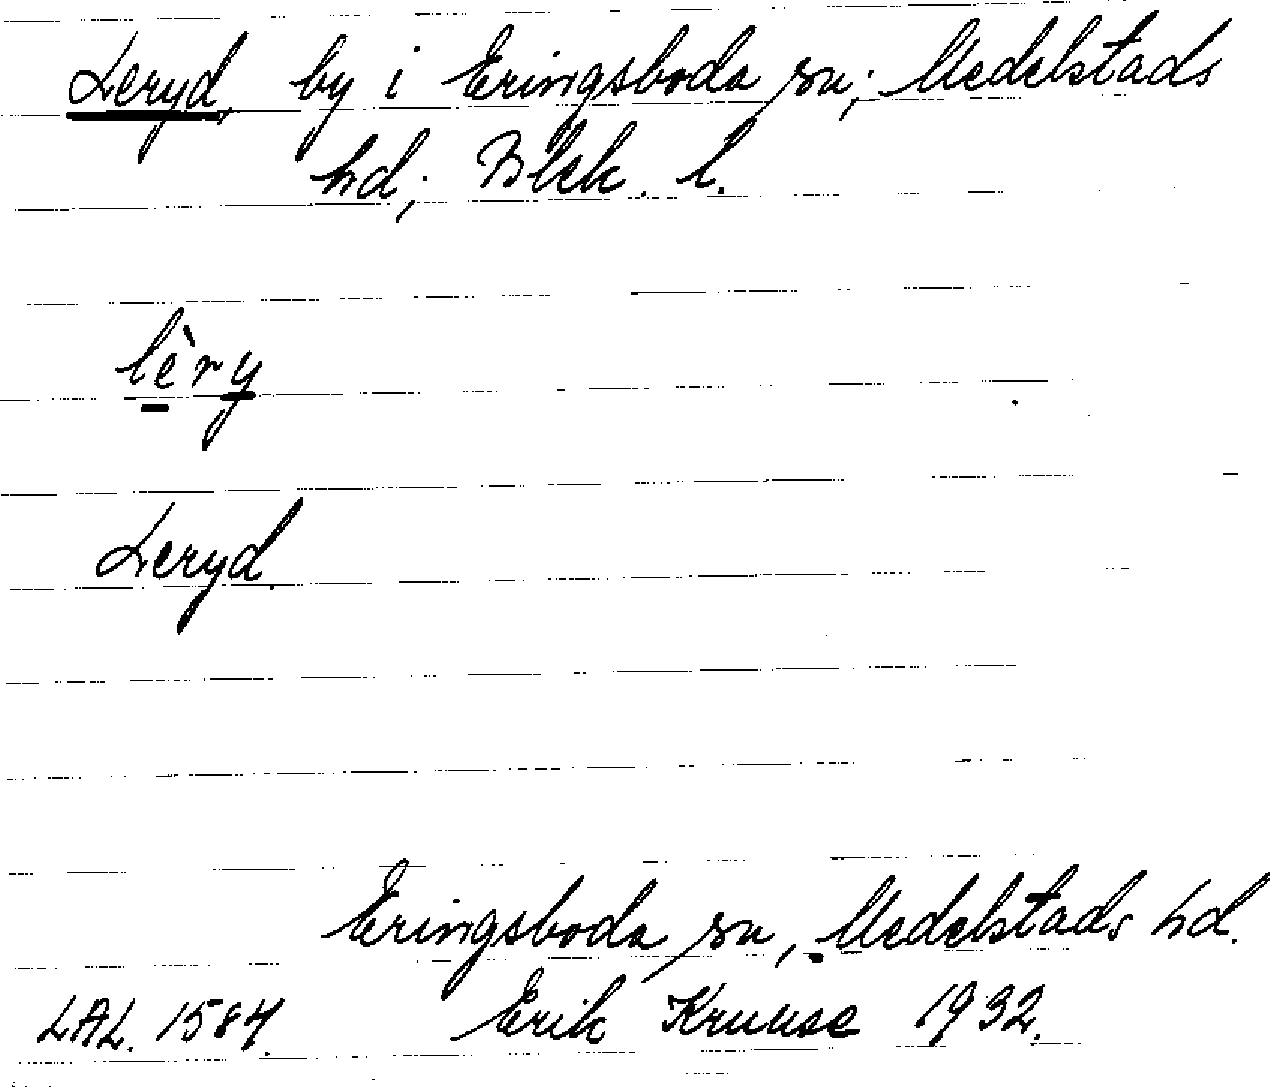 Leryd, by i Eringsboda sn; Medelstads
hd; Blek. l.
lèry
Leryd.
Eringsboda sn, Medelstads hd.
LAL. 1584. Erik Kruuse 1932.